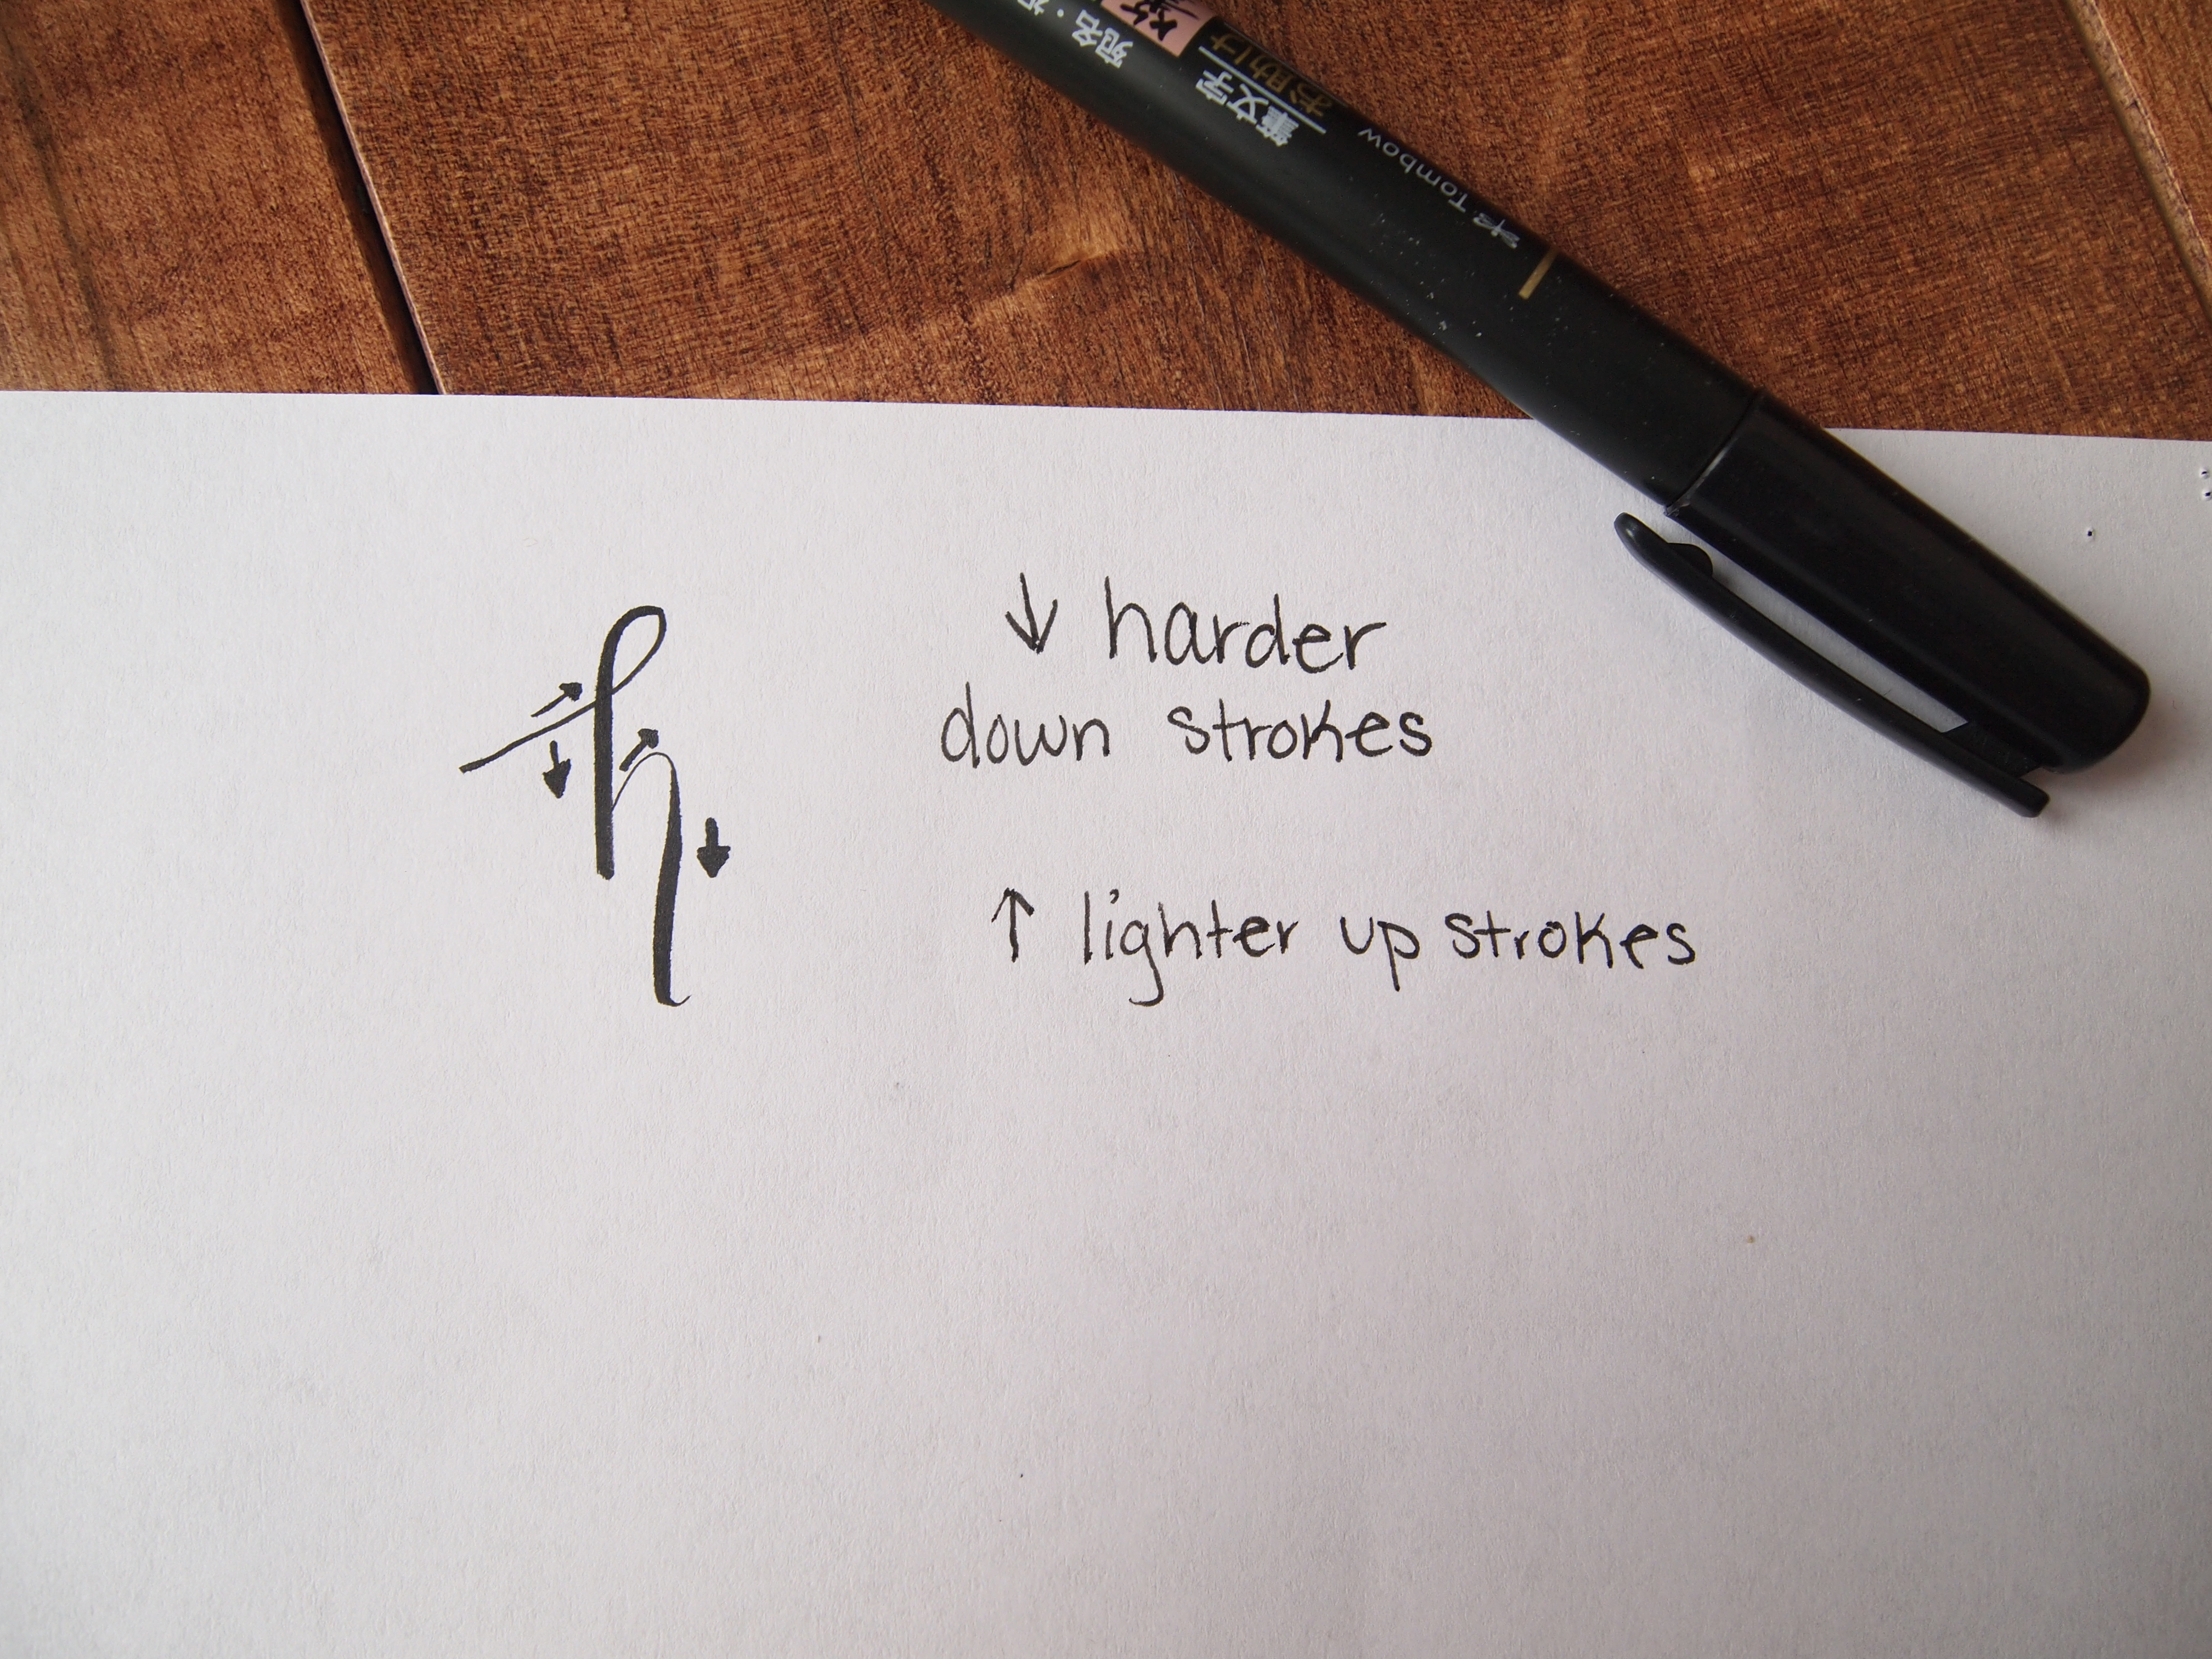 宛名・
筆文字
お助け
Tombow
h
↓ harder
down strokes
↑ lighter up strokes